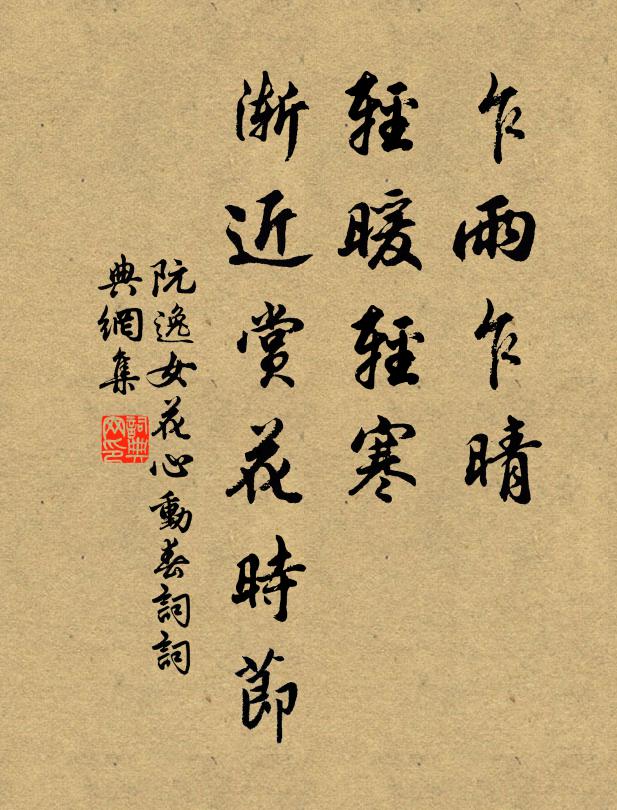 乍雨乍晴
輕暖輕寒
漸近賞花時節
阮逸女花心動春詞詞
典網集
詞典
网印